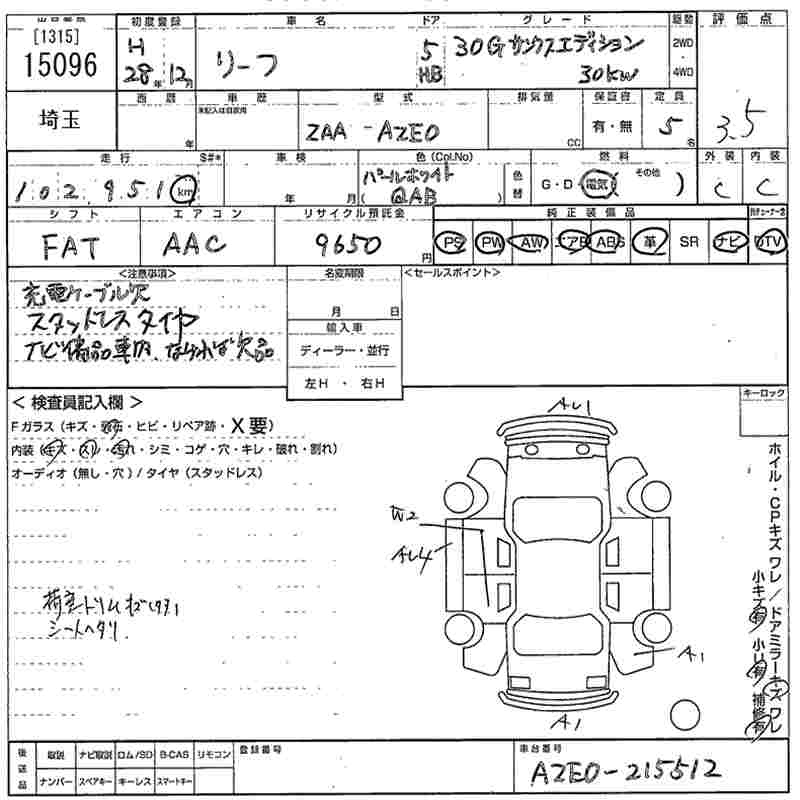 出品番号 初度登録 車名 ドア グレード 駆動 評価点
[1315] 15096
H 28年 12月
リーフ
5 HB
30G サンクスエディション
30kw
2WD ・ 4WD
3.5
埼玉
西暦 車歴 型式 排気量 保証書 定員
年
未記入は自家用
ZAA - AZE0
CC
有・無
5名
走行 S#* 車検 色(Col.No) 燃料 外装 内装
102,951 km
年 月
パールホワイト
(QAB)
色替
G・D・電気( その他 )
C C
シフト エアコン リサイクル預託金 純正装備品
FAT AAC 9650円
PS PW AW エアB ABS 革 SR ナビ DTV
<注意事項> 名変期限 <セールスポイント>
充電ケーブル欠
スタットレスタイヤ
ナビ備品車内、なければ欠品
月 日
輸入車
ディーラー・並行
左H ・ 右H
< 検査員記入欄 >
キーロック
Fガラス(キズ・飛石・ヒビ・リペア跡・X要)
内装(キズ・スレ・汚れ・シミ・コゲ・穴・キレ・破れ・割れ)
オーディオ(無し・穴)/タイヤ(スタッドレス)
AU1
W2
AU4
A1
A1
シートヘタリ
ホイル・CPキズ ワレ/ドアミラーキズ ワレ
小キズ有 小凹有 補修有
後送品 取説 ナビ取説 ロム/SD B-CAS リモコン
ナンバー スペアキー キーレス スマートキー
登録番号
車台番号
AZE0-215512